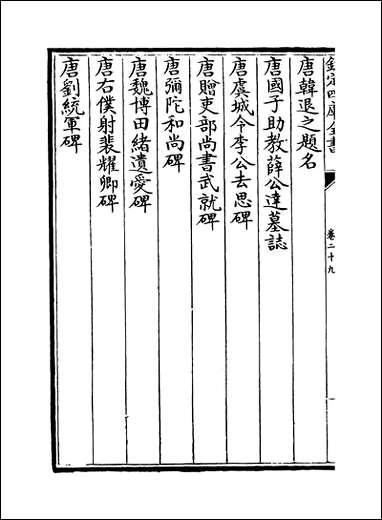 欽定四庫全書
卷二十九
唐韓退之題名
唐國子助教薛公達墓誌
唐虞城令李公去思碑
唐贈吏部尚書武就碑
唐彌陀和尚碑
唐魏博田緒遺愛碑
唐右僕射裴耀卿碑
唐劉統軍碑